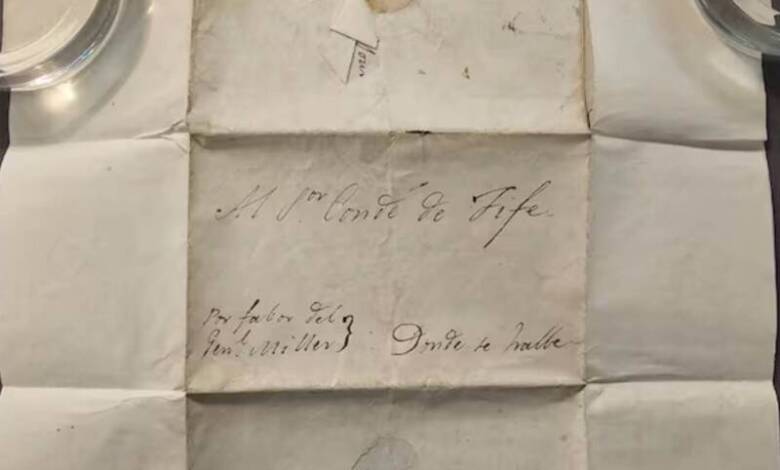 Al S.ᵒʳ Conde de Fife.
Por fabor del
Gen.ˡ Miller}
Donde se halle